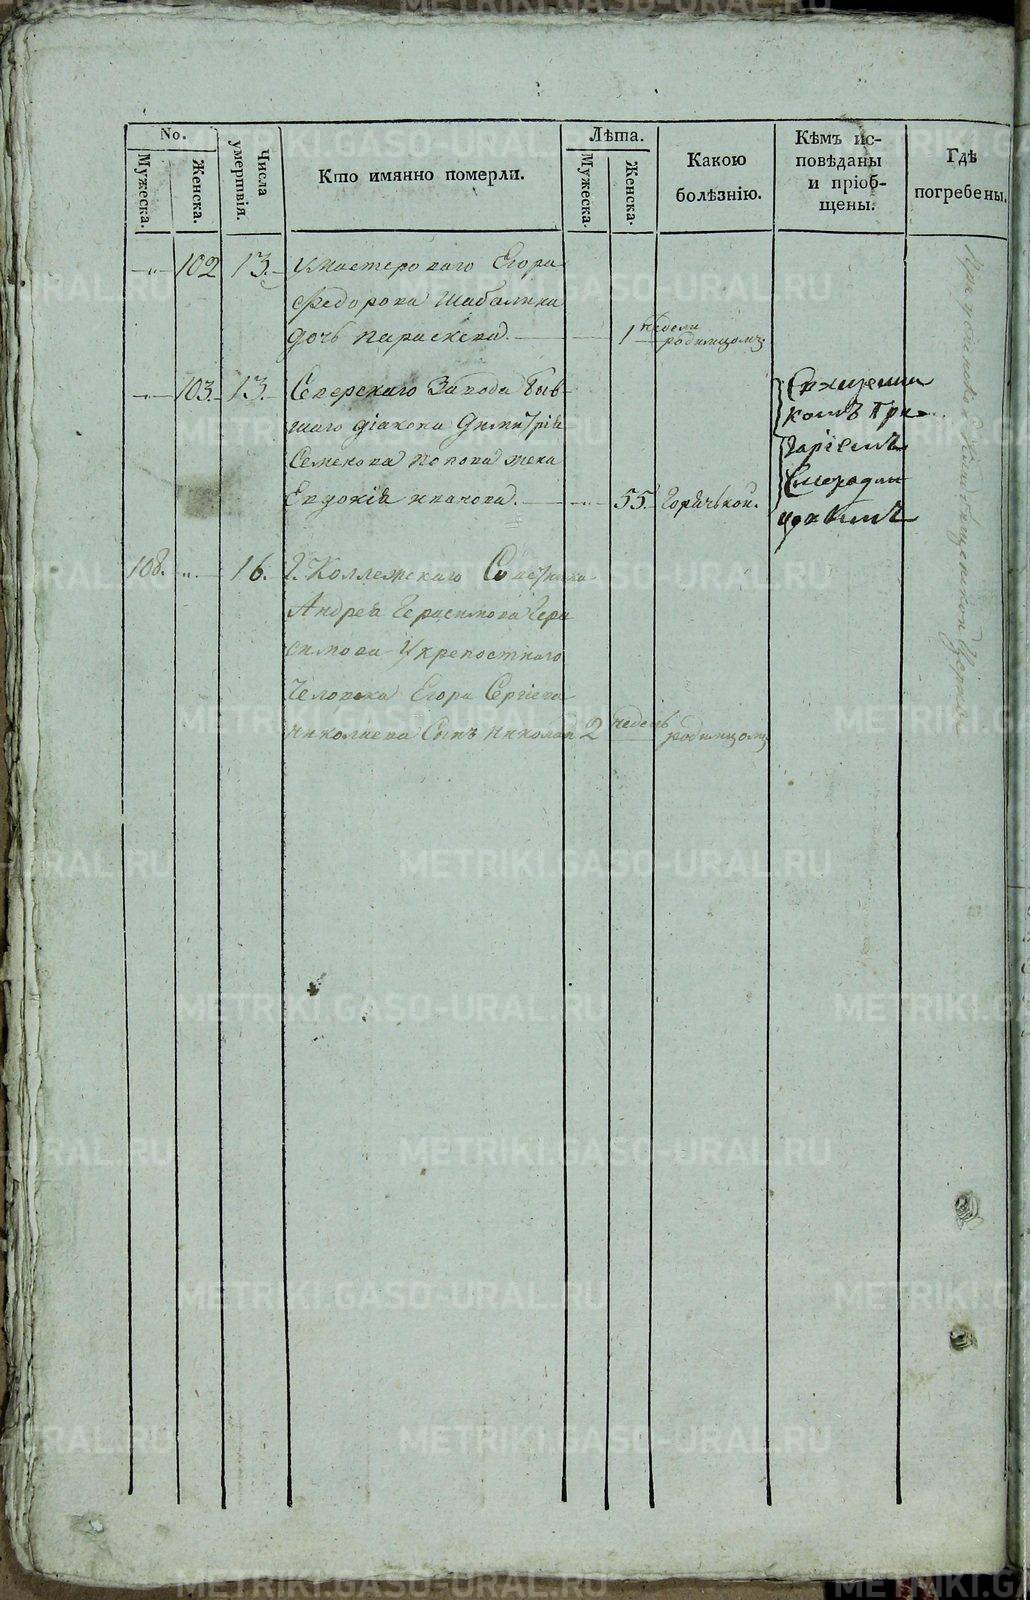 No.
Мужеска.
Женска.
Числа
умертвія.
Кто имянно померли.
Лѣта.
Мужеска.
Женска.
Какою
болѣзнію.
Кѣмъ ис-
повѣданы
и пріоб-
щены.
Гдѣ
погребены.
102 13. Умастероваго Егора
Федорова Шабалина
дочь Параскева. 1 недели родимцомъ
103. 13. Северскаго Завода быв-
шаго діакона Димитрія
Семенова Попова жена
Евдокія Иванова. 55. Горячькой.
Священни
комъ Гри-
горіемъ
108. 16. Г. Коллежскаго Советника
Андрея Герасимова Гера
симова Укрепостнаго
Человека Егора Сергіева
Николаева Сынъ Николай 2 недель родимцомъ
При
Церкви
METRIKI.GASO-URAL.RU